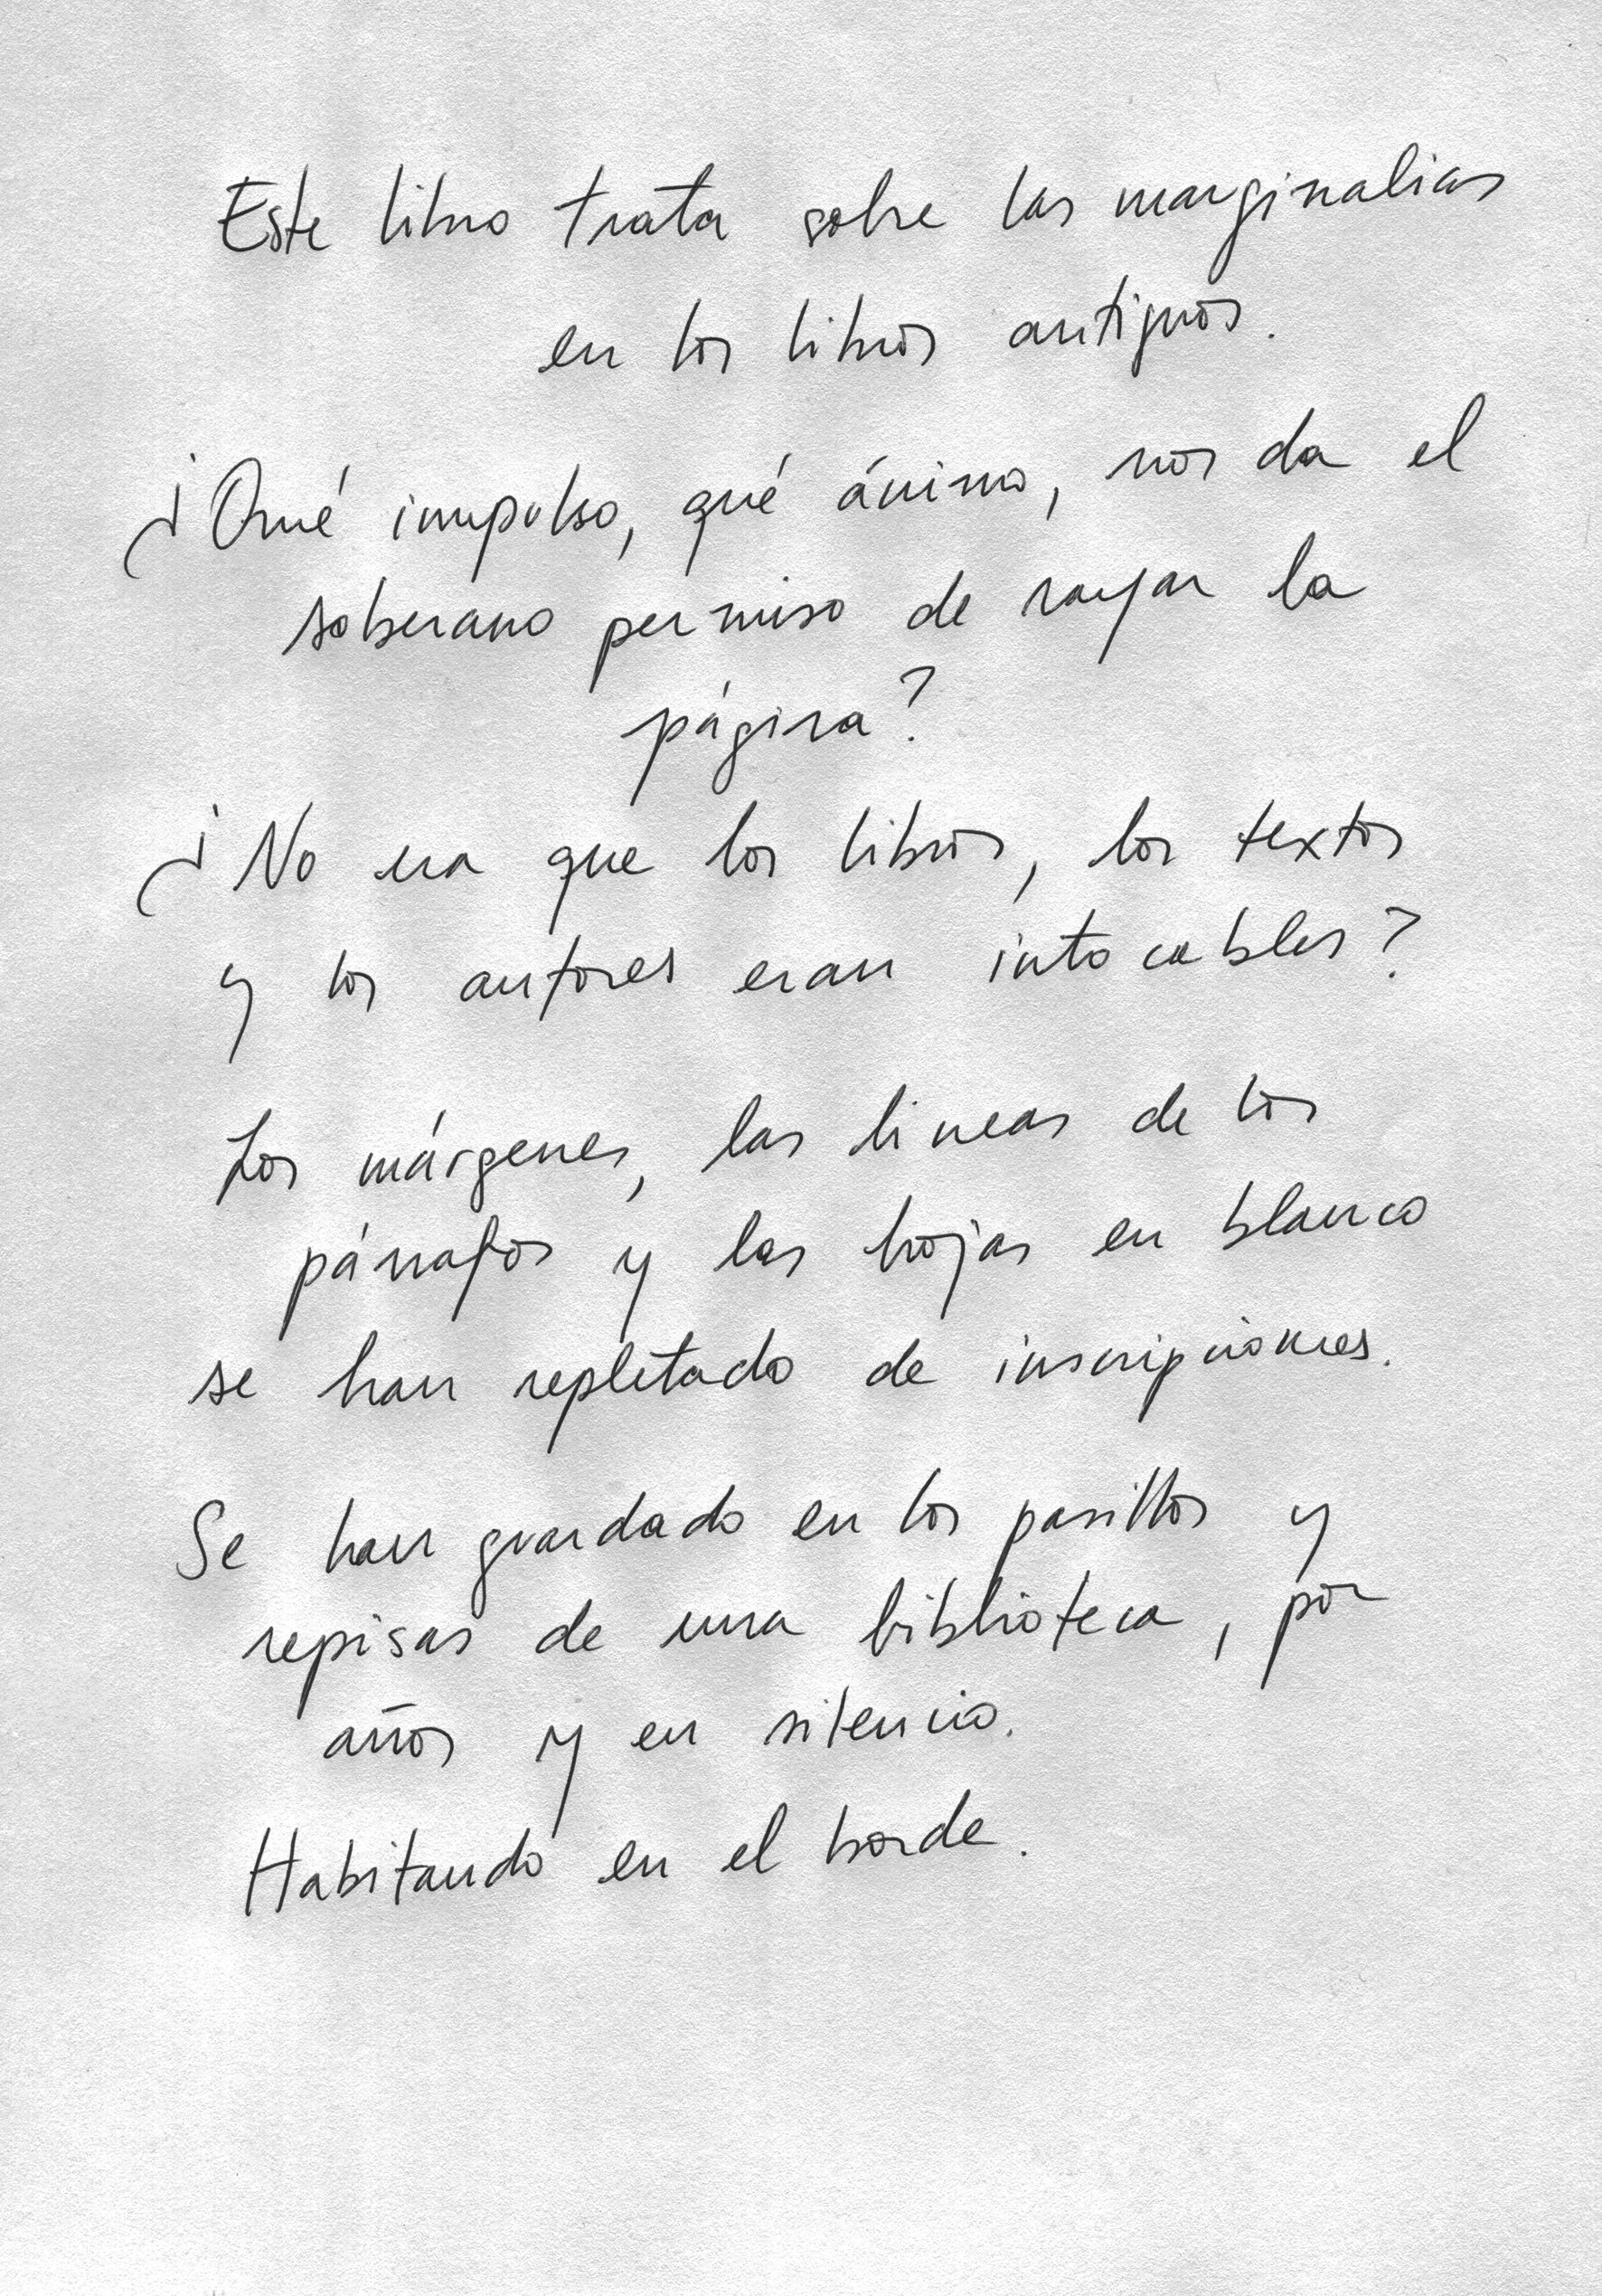 Este libro trata sobre las marginalias
en los libros antiguos.
¿Qué impulso, qué ánimo, nos da el
soberano permiso de rayar la
página?
¿No era que los libros, los textos
y los autores eran intocables?
Los márgenes, las lineas de los
párrafos y las hojas en blanco
se han repletado de inscripciones.
Se han guardado en los pasillos y
repisas de una biblioteca, por
años y en silencio.
Habitando en el borde.